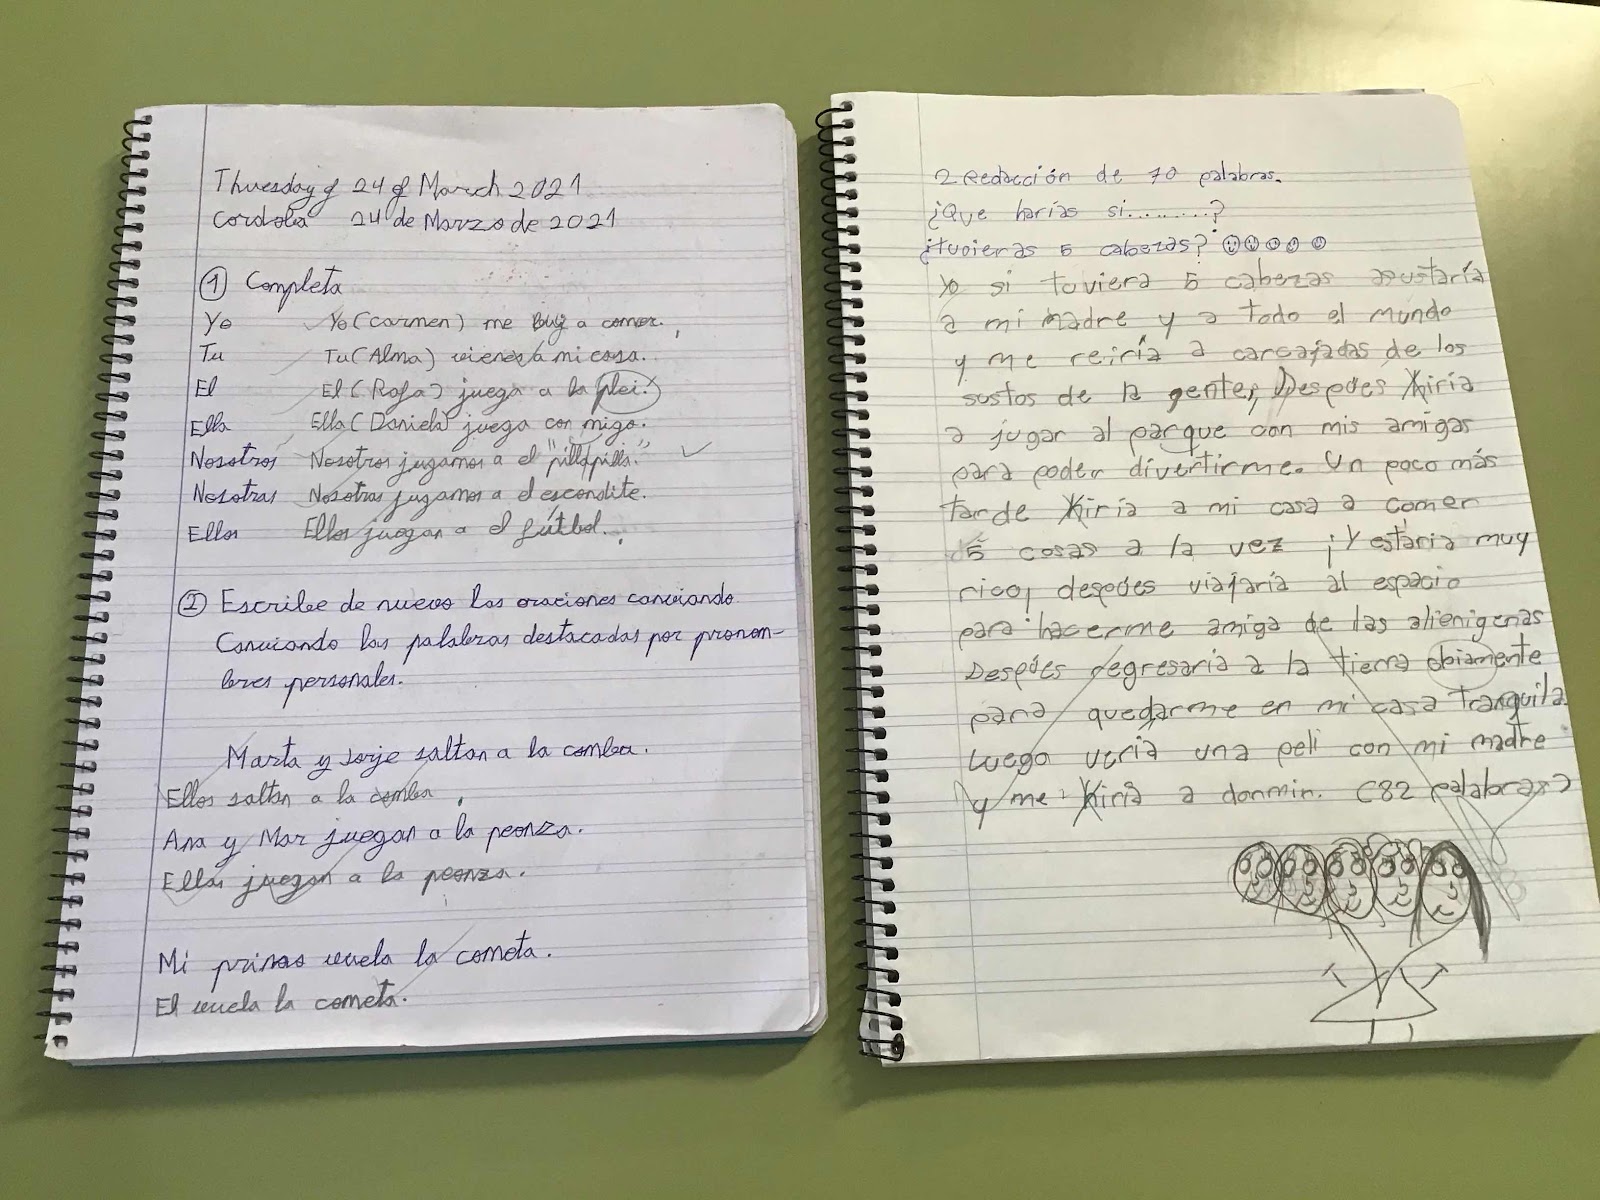 Thuesday of 24 of March 2021
Cordoba 24 de Marzo de 2021
① Completa
Yo Yo (Carmen) me buy a comer.
Tu Tu (Alma) vienes a mi casa.
El El (Rafa) juega a la plei.
Ella Ella (Daniela) juega con migo.
Nosotros Nosotros jugamos a el "pillapilla."
Nosotras Nosotras jugamos a el escondite.
Ellos Ellos juegan a el fútbol.
② Escribe de nuevo las oraciones canviando
Canviando las palabras destacadas por pronom-
bres personales.
Marta y Jorje saltan a la comba.
Ellos saltan a la comba
Ana y Mar juegan a la peonza.
Ellas juegan a la peonza.
Mi primo vuela la cometa.
El vuela la cometa.
2 Redacción de 70 palabras.
¿Que harías si.........?
¿tuvieras 5 cabezas?
Yo si tuviera 5 cabezas asustaría
a mi madre y a todo el mundo
y me reiría a carcajadas de los
sustos de la gente, Despues iria
a jugar al parque con mis amigas
para poder divertirme. Un poco más
tarde iria a mi casa a comer
5 cosas a la vez ¡Y estaria muy
rico, despues viajaría al espacio
para hacerme amiga de las alienigenas
Despues regresaria a la tierra obiamente
para quedarme en mi casa tranquila
Luego veria una peli con mi madre
y me iria a dormir. (82 palabras)